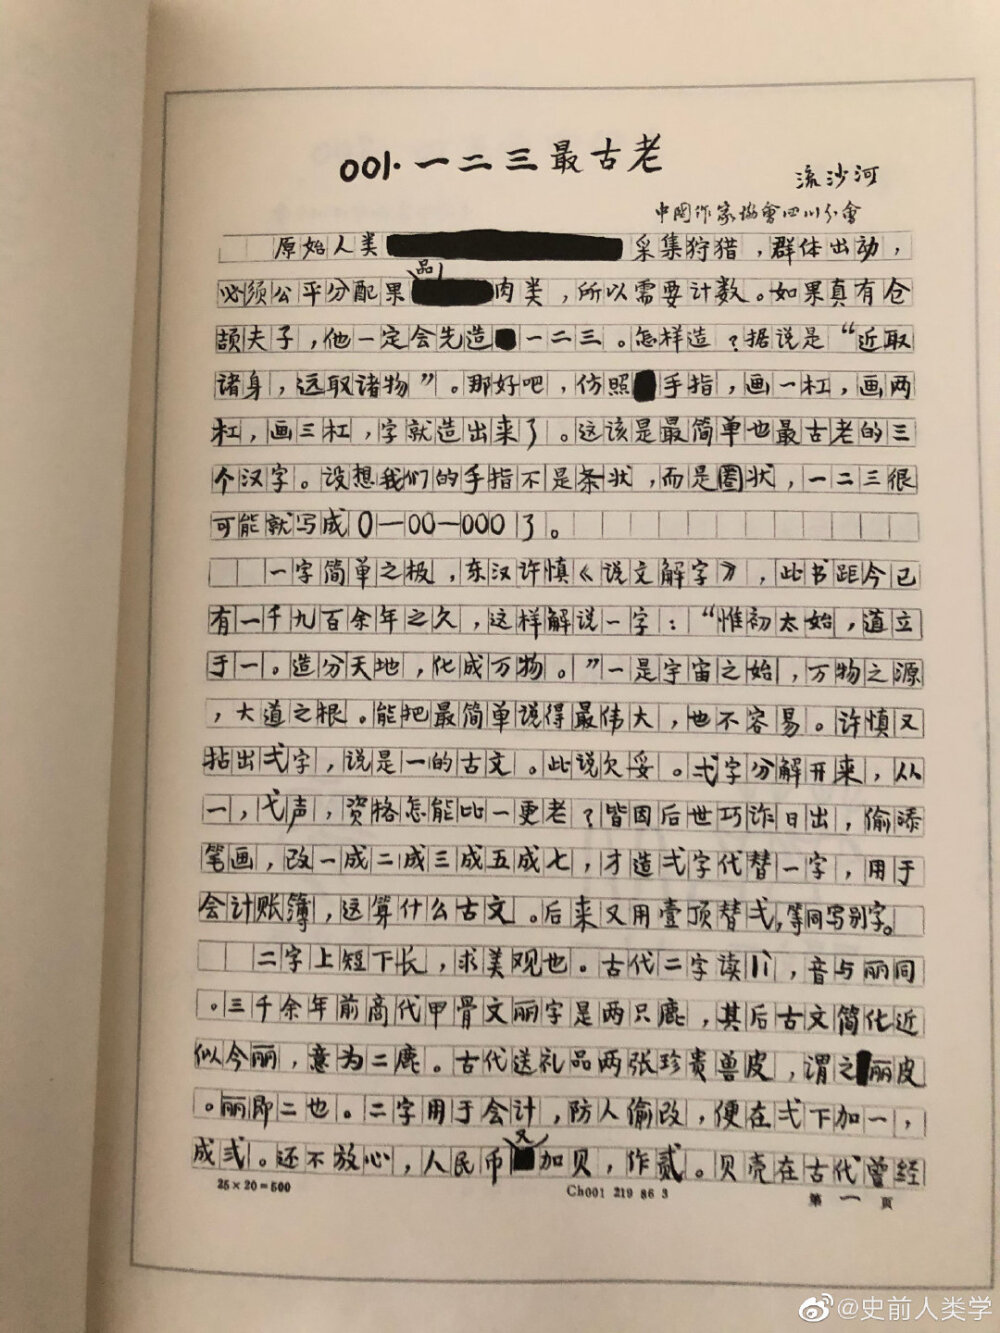 001·一二三最古老
流沙河
中国作家协會四川分會
原始人类采集狩猎，群体出动，
必须公平分配果品肉类，所以需要计数。如果真有仓
颉夫子，他一定会先造一二三。怎样造？据说是“近取
诸身，远取诸物”。那好吧，仿照手指，画一杠，画两
杠，画三杠，字就造出来了。这该是最简单也最古老的三
个汉字。设想我们的手指不是条状，而是圈状，一二三很
可能就写成0—00—000了。
一字简单之极，东汉许慎《说文解字》，此书距今已
有一千九百余年之久，这样解说一字：“惟初太始，道立
于一。造分天地，化成万物。”一是宇宙之始，万物之源
，大道之根。能把最简单说得最伟大，也不容易。许慎又
拈出弌字，说是一的古文。此说欠妥。弌字分解开来，从
一，弋声，资格怎能比一更老？皆因后世巧诈日出，偷添
笔画，改一成二成三成五成七，才造弌字代替一字，用于
会计账簿，这算什么古文。后来又用壹顶替弌，等同写别字。
二字上短下长，求美观也。古代二字读lì，音与丽同
。三千余年前商代甲骨文丽字是两只鹿，其后古文简化近
似今丽，意为二鹿。古代送礼品两张珍贵兽皮，谓之丽皮
。丽即二也。二字用于会计，防人偷改，便在弌下加一，
成弍。还不放心，人民币又加贝，作贰。贝壳在古代曾经
25×20=500
Ch001 219 86 3
第一頁
@史前人类学